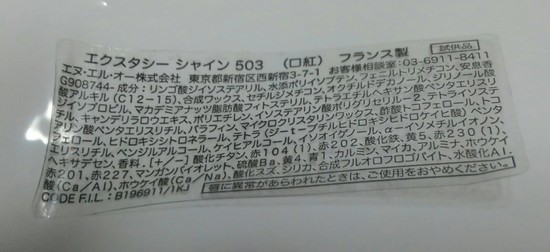 エクスタシー シャイン 503 （口紅） フランス製 試供品
エヌ・エル・オー株式会社 東京都新宿区西新宿3-7-1 お客様相談室:03-6911-8411
G908744- 成分：リンゴ酸ジイソステアリル、水添ポリイソブテン、フェニルトリメチコン、安息香
酸アルキル（C12－15）、合成ワックス、セチルジメチコン、オクチルドデカノール、リシノール酸
ジイソプロピル、マカデミアナッツ脂肪酸フィトステリル、テトライソステアリン酸ペンタエリスリ
チル、キャンデリラロウエキス、ポリエチレン、イソステアリン酸ポリグリセリル－2、テトライソステ
アリン酸ペンタエリスリチル、パラフィン、マイクロクリスタリンワックス、酢酸トコフェロール、トコ
フェロール、ヒドロキシシトロネラール、テトラ（ジ－t－ブチルヒドロキシヒドロケイヒ酸）ペンタ
エリスリチル、ベンジルアルコール、ケイヒアルコール、イソオイゲノール、α－イソメチルイオノン、
ヘキサデセン、香料、［＋／－］酸化チタン、赤104（1）、赤202、酸化鉄、黄5、赤230（1）、
赤201、赤227、マンガンバイオレット、硫酸Ba、黄4、青1、カルミン、マイカ、アルミナ、ホウケイ
酸（Ca／Al）、ホウケイ酸（Ca／Na）、酸化スズ、シリカ、合成フルオロフロゴパイト、水酸化Al、
CODE F.I.L. : B196911/1KJ 唇に異常があらわれたときは、ご使用をおやめください。